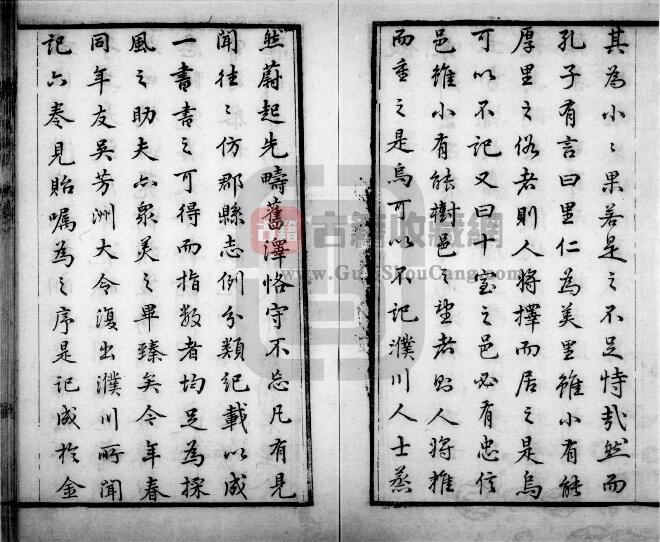 其為小〻果若是之不足恃哉然而
孔子有言曰里仁為美里雖小有能
厚里之俗者則人將擇而居之是烏
可以不記又曰十室之邑必有忠信
邑雖小有能樹邑之望者則人將推
而重之是烏可以不記濮川人士蒸
然蔚起先疇舊澤恪守不忘凡有見
聞往〻仿郡縣志例分類紀載以成
一書書之可得而指數者均足為採
風之助夫亦眾美之畢臻矣今年春
同年友吳芳洲大令復出濮川所聞
記六卷見貽囑為之序是記成於金
古籍 古籍收藏網
www.GuJiShouCang.com